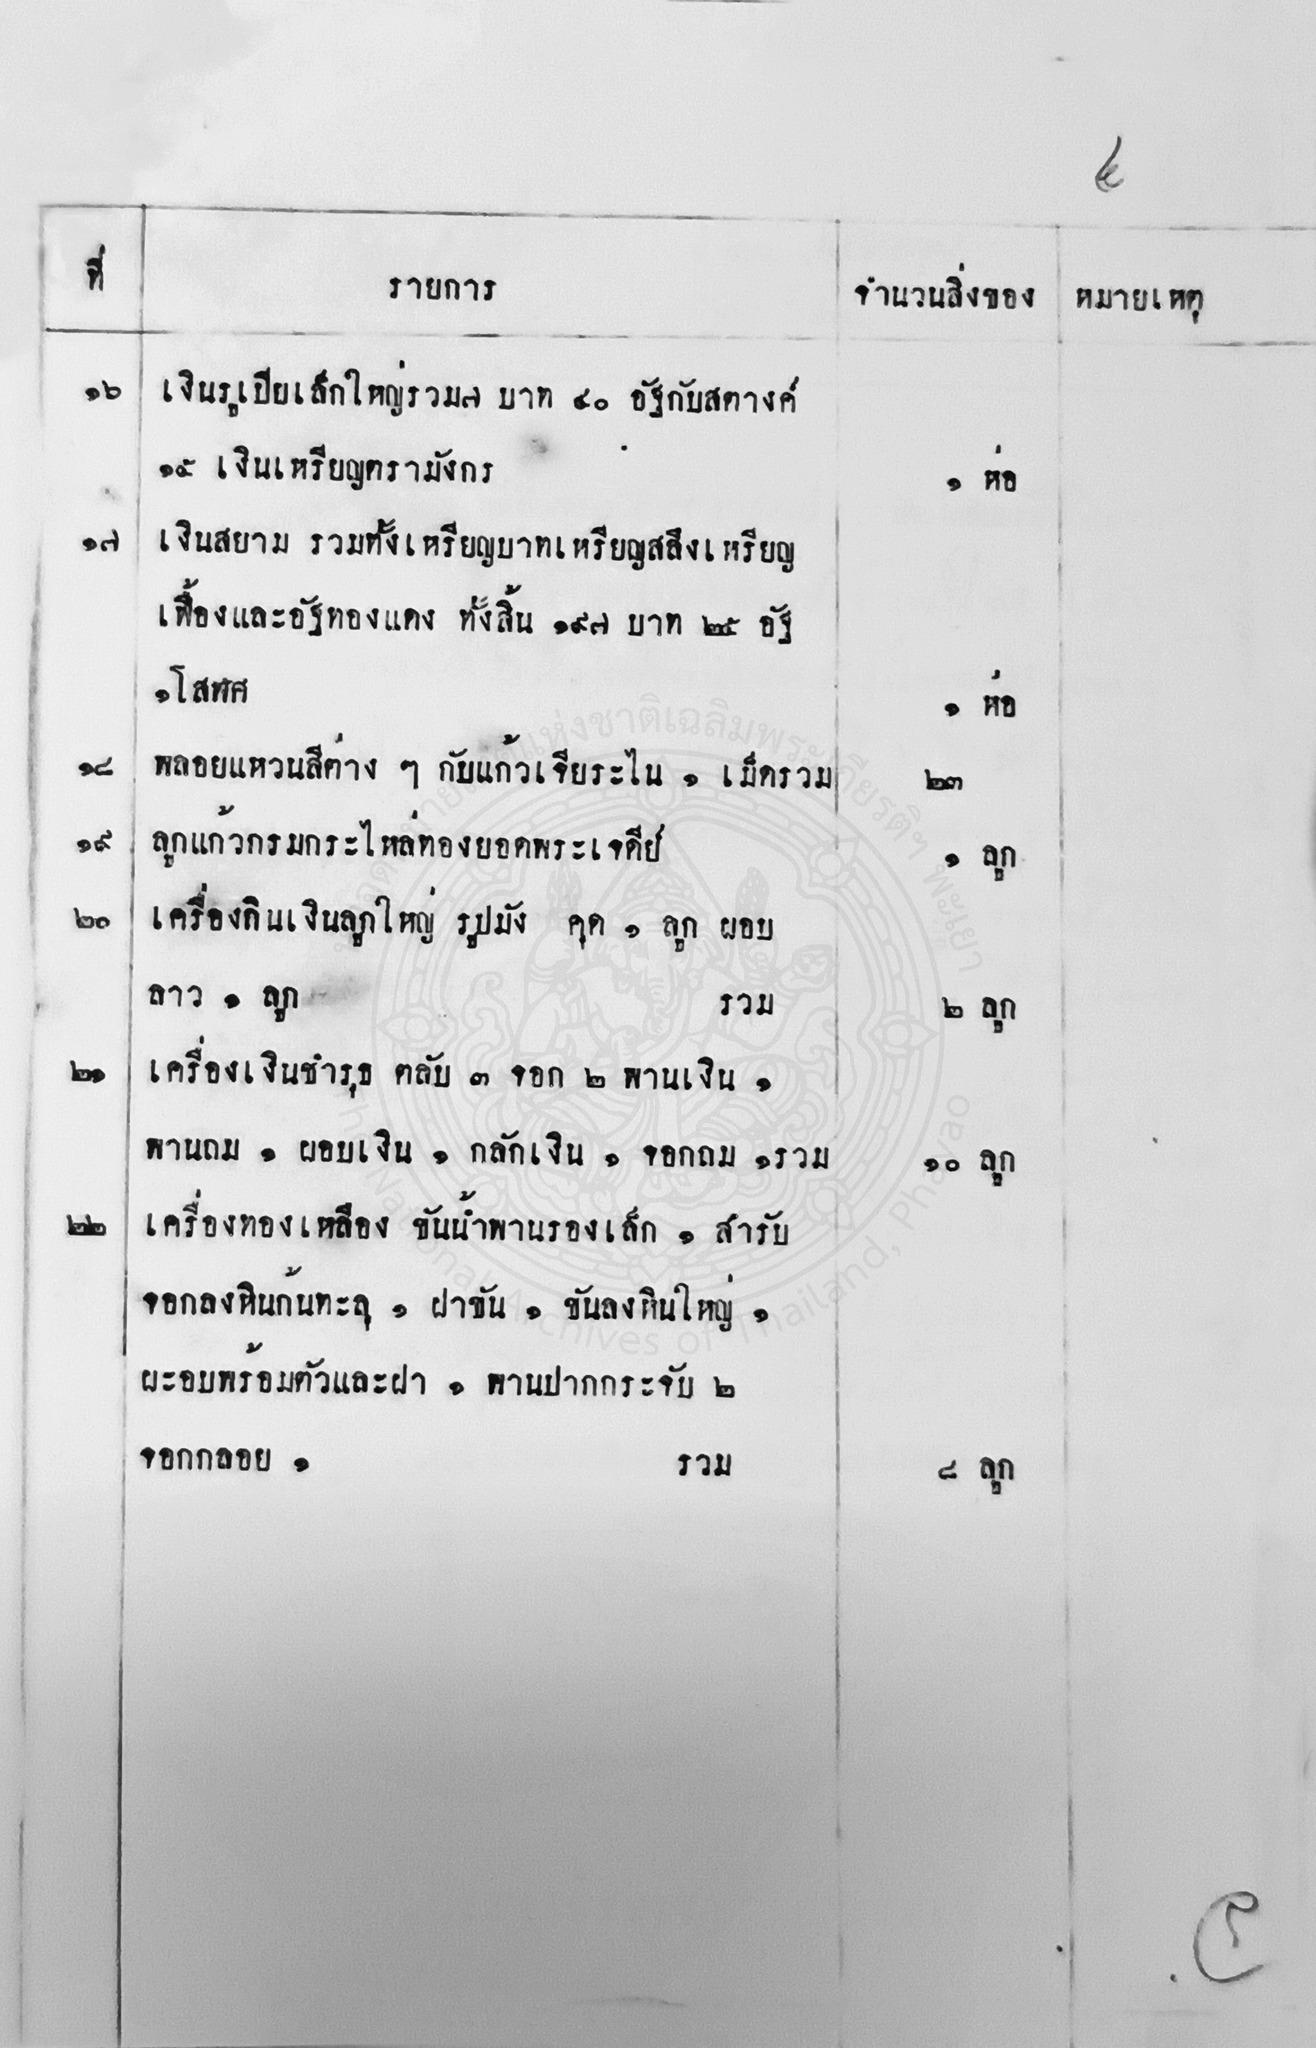 ที่ รายการ จำนวนสิ่งของ หมายเหตุ
๑๖ เงินรูเปียเล็กใหญ่รวม๗ บาท ๔๐ อัฐกับสตางค์
๑๕ เงินเหรียญตรามังกร ๑ ห่อ
๑๗ เงินสยาม รวมทั้งเหรียญบาทเหรียญสลึงเหรียญ
เฟื้องและอัฐทองแดง ทั้งสิ้น ๑๙๗ บาท ๒๕ อัฐ
๑โสฬศ ๑ ห่อ
๑๘ พลอยแหวนสีต่าง ๆ กับแก้วเจียระไน ๑ เม็ดรวม ๒๓
๑๙ ลูกแก้วกรมกระไหล่ทองยอดพระเจดีย์ ๑ ลูก
๒๐ เครื่องถินเงินลูกใหญ่ รูปมัง คุด ๑ ลูก ผอบ
ลาว ๑ ลูก รวม ๒ ลูก
๒๑ เครื่องเงินชำรุธ ตลับ ๓ จอก ๒ พานเงิน ๑
พานถม ๑ ผอบเงิน ๑ กลักเงิน ๑ จอกถม ๑รวม ๑๐ ลูก
๒๒ เครื่องทองเหลือง ขันน้ำพานรองเล็ก ๑ สำรับ
จอกลงหินก้นทะลุ ๑ ฝาขัน ๑ ขันลงหินใหญ่ ๑
ผะอบพร้อมตัวและฝา ๑ พานปากกระจับ ๒
จอกกลอย ๑ รวม ๘ ลูก
แห่งชาติเฉลิมพระเกียรติฯ พะเยา
National Archives of Thailand, Phayao